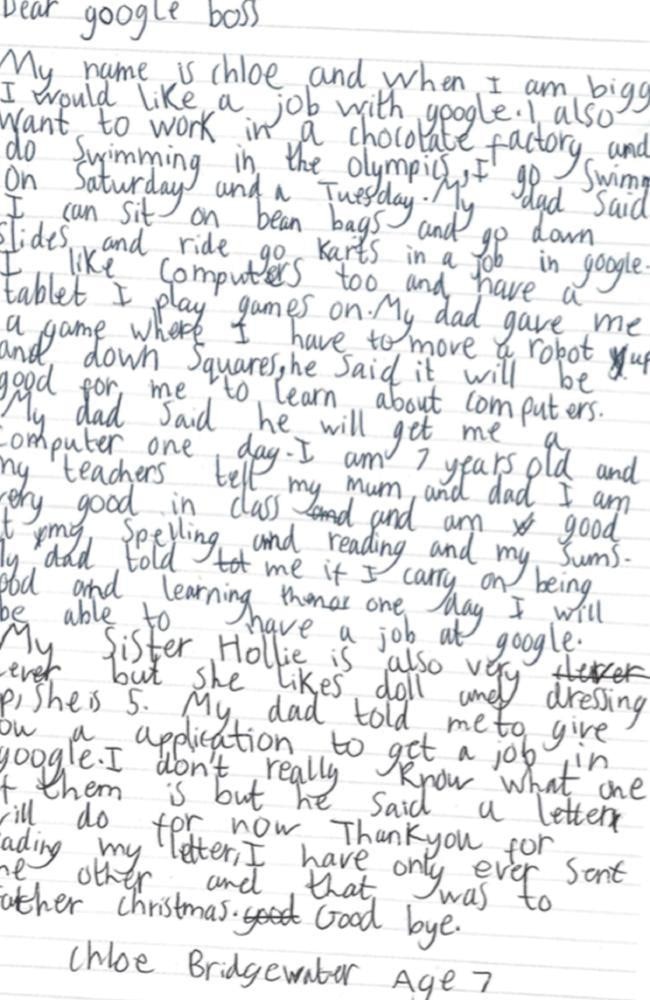 Dear google boss
My name is chloe and when I am bigg
I would like a job with google. I also
want to work in a chocolate factory and
do Swimming in the olympics, I go Swimm
On Saturday and a Tuesday. My dad Said
I can sit on bean bags and go down
slides and ride go karts in a job in google.
I like computers too and have a
tablet I play games on. My dad gave me
a game where I have to move a robot up
and down Squares, he said it will be
good for me to learn about computers.
My dad said he will get me a
computer one day. I am 7 years old and
my teachers tell my mum and dad I am
very good in class and and am good
t my Spelling and reading and my Sums.
My dad told tot me if I carry on being
ood and learning one day I will
be able to have a job at google.
My Sister Hollie is also very clever
lever but she likes doll and dressing
p, She is 5. My dad told me to give
ou a application to get a job in
google. I don't really know what one
f them is but he Said a letter
rill do for now Thankyou for
ading my letter, I have only ever sent
ne other and that was to
father christmas. good Good bye.
Chloe Bridgewater Age 7